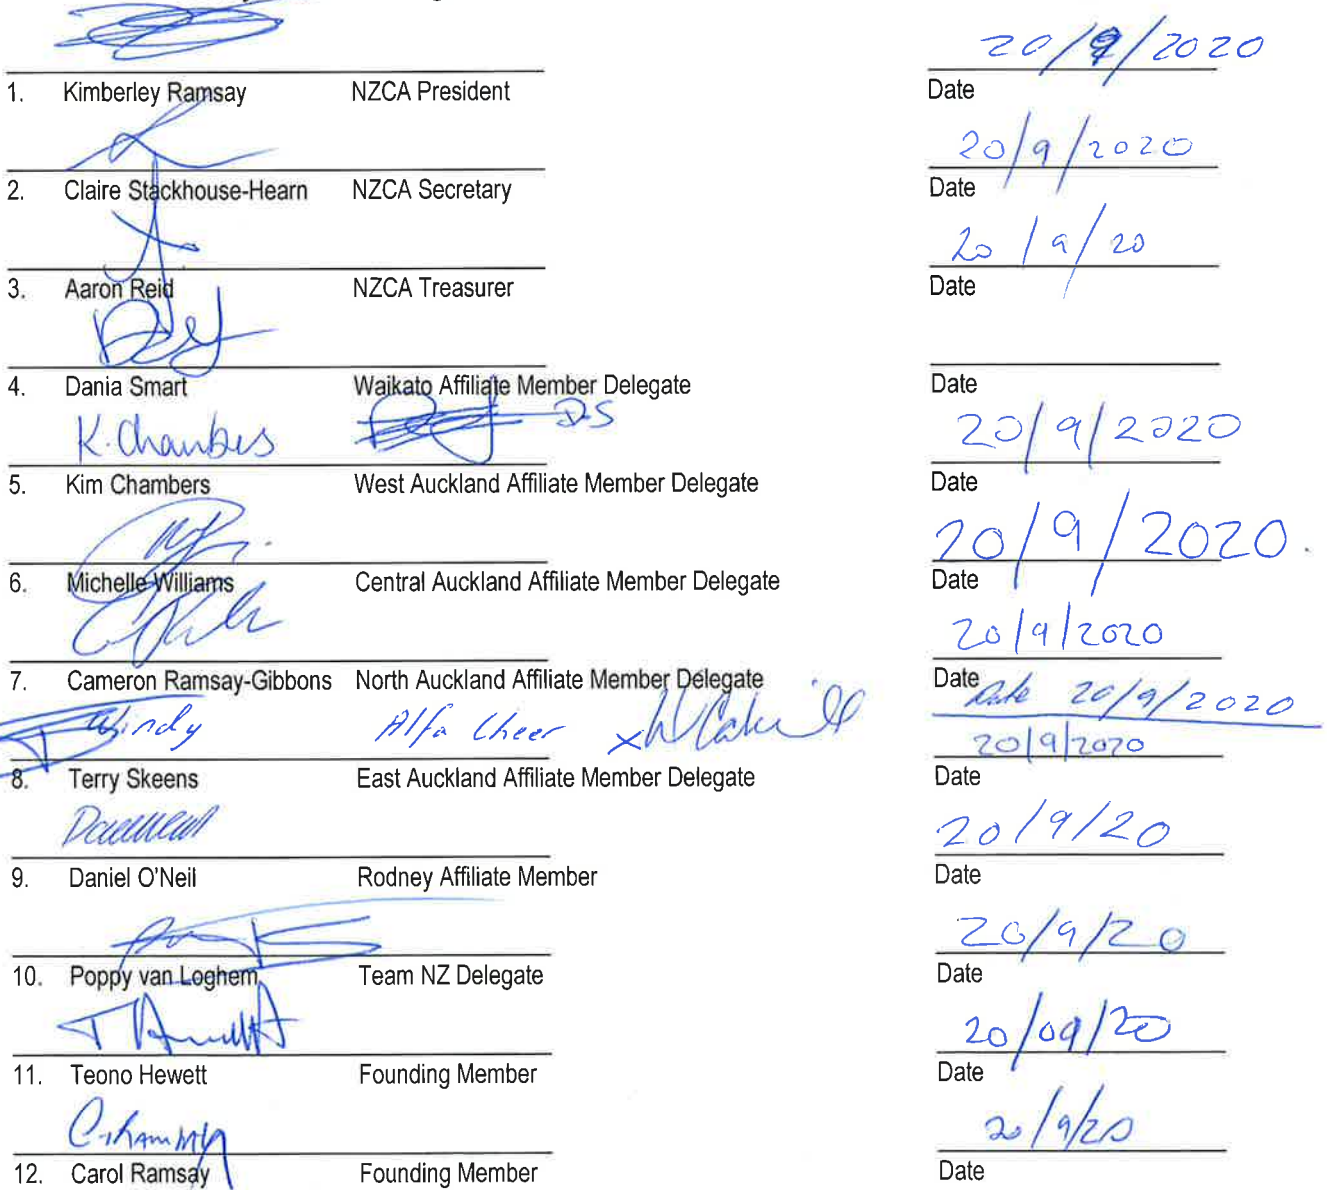 20/9/2020
1. Kimberley Ramsay NZCA President Date
20/9/2020
2. Claire Stackhouse-Hearn NZCA Secretary Date
20/9/20
3. Aaron Reid NZCA Treasurer Date
4. Dania Smart Waikato Affiliate Member Delegate Date
K. Chambers DS 20/9/2020
5. Kim Chambers West Auckland Affiliate Member Delegate Date
20/9/2020.
6. Michelle Williams Central Auckland Affiliate Member Delegate Date
20/9/2020
7. Cameron Ramsay-Gibbons North Auckland Affiliate Member Delegate Date
Windy Alfa Cheer x WCahill Date 20/9/2020
20/9/2020
8. Terry Skeens East Auckland Affiliate Member Delegate Date
20/9/20
9. Daniel O'Neil Rodney Affiliate Member Date
20/9/20
10. Poppy van Loghem Team NZ Delegate Date
T Hewett 20/09/20
11. Teono Hewett Founding Member Date
20/9/20
12. Carol Ramsay Founding Member Date